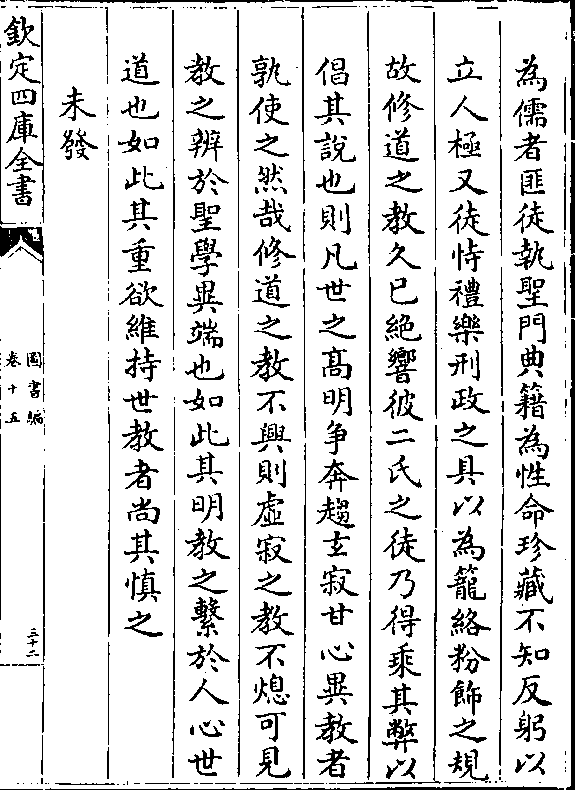 為儒者匪徒執聖門典籍為性命珍藏不知反躬以
立人極又徒恃禮樂刑政之具以為籠絡粉飾之規
故修道之教久已絶響彼二氏之徒乃得乘其弊以
倡其說也則凡世之髙明争奔趨玄寂甘心異教者
孰使之然哉修道之教不興則虛寂之教不熄可見
教之辨於聖學異端也如此其明教之繫於人心世
道也如此其重欲維持世教者尚其慎之
未發
欽定四庫全書
圖書編
卷十五
三十二